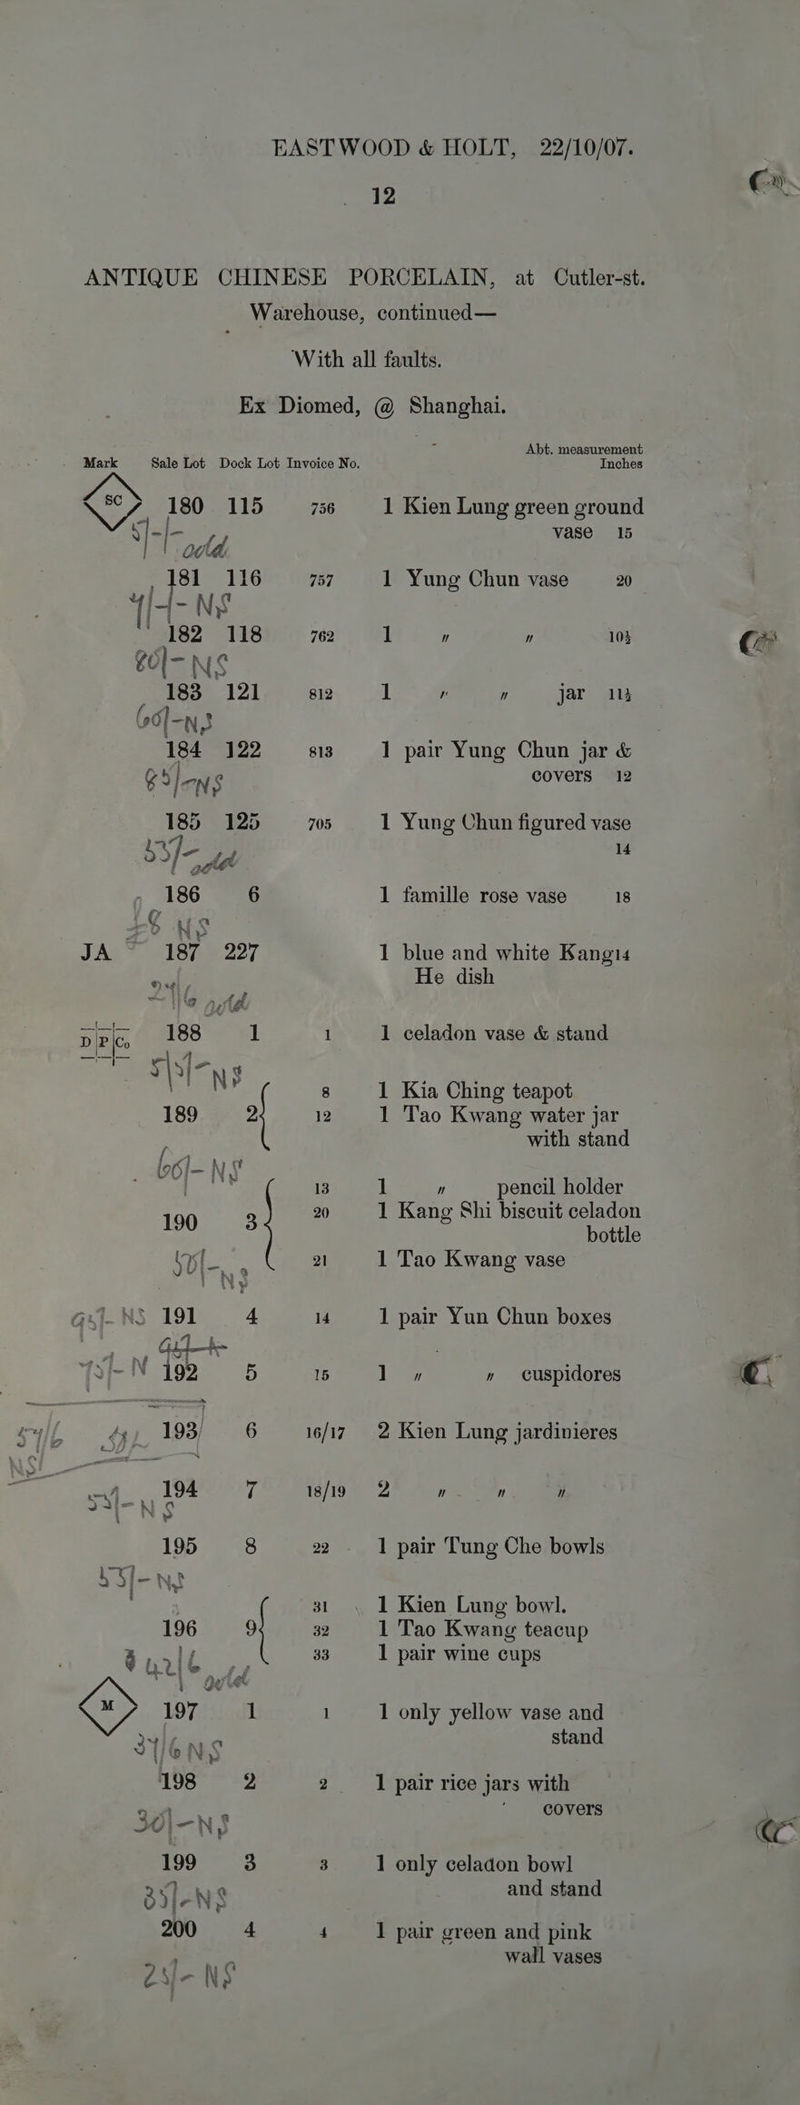 EASTWOOD & HOLT, 22/10/07.
12
ANTIQUE CHINESE PORCELAIN, at Cutler-st.
Warehouse, continued—
With all faults.
Ex Diomed, @ Shanghai.
Abt. measurement
Mark Sale Lot Dock Lot Invoice No. Inches
SC 180 115 756 1 Kien Lung green ground
vase 15
5/-/- sold
181 116 757 1 Yung Chun vase 20
4/-/- NS
182 118 762 1 " " 10¾
60/- NS
183 121 812 1 " " jar 11¾
60/- NS
184 122 813 1 pair Yung Chun jar &
covers 12
65/- NS
185 125 705 1 Yung Chun figured vase
14
55/- sold
186 6 1 famille rose vase 18
NS
JA 187 227 1 blue and white Kang14
He dish
sold
D P Co 188 1 1 1 celadon vase & stand
5/5/- NS
8 1 Kia Ching teapot
189 2 12 1 Tao Kwang water jar
with stand
60/- NS
13 1 " pencil holder
190 3 20 1 Kang Shi biscuit celadon
bottle
50/- NS
21 1 Tao Kwang vase
95/- NS 191 4 14 1 pair Yun Chun boxes
75/- N 192 5 15 1 " " cuspidores
193 6 16/17 2 Kien Lung jardinieres
NS
194 7 18/19 2 " " "
55/- NS
195 8 22 1 pair Tung Che bowls
55/- NS
31 1 Kien Lung bowl.
196 9 32 1 Tao Kwang teacup
33 1 pair wine cups
42/6 sold
M 197 1 1 1 only yellow vase and
stand
37/6 NS
198 2 2 1 pair rice jars with
covers
30/- NS
199 3 3 1 only celadon bowl
and stand
35/- NS
200 4 4 1 pair green and pink
wall vases
25/- NS